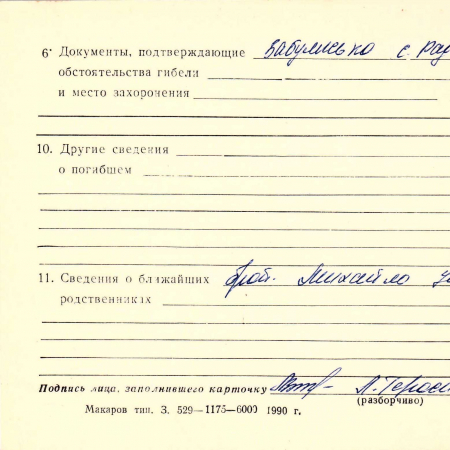 6. Документы, подтверждающие
обстоятельства гибели
и место захоронения
10. Другие сведения
о погибшем
11. Сведения о ближайших Михайло
родственниках
Подпись лица, заполнившего карточку
(разборчиво)
Макаров тип. З. 529—1175—6000 1990 г.